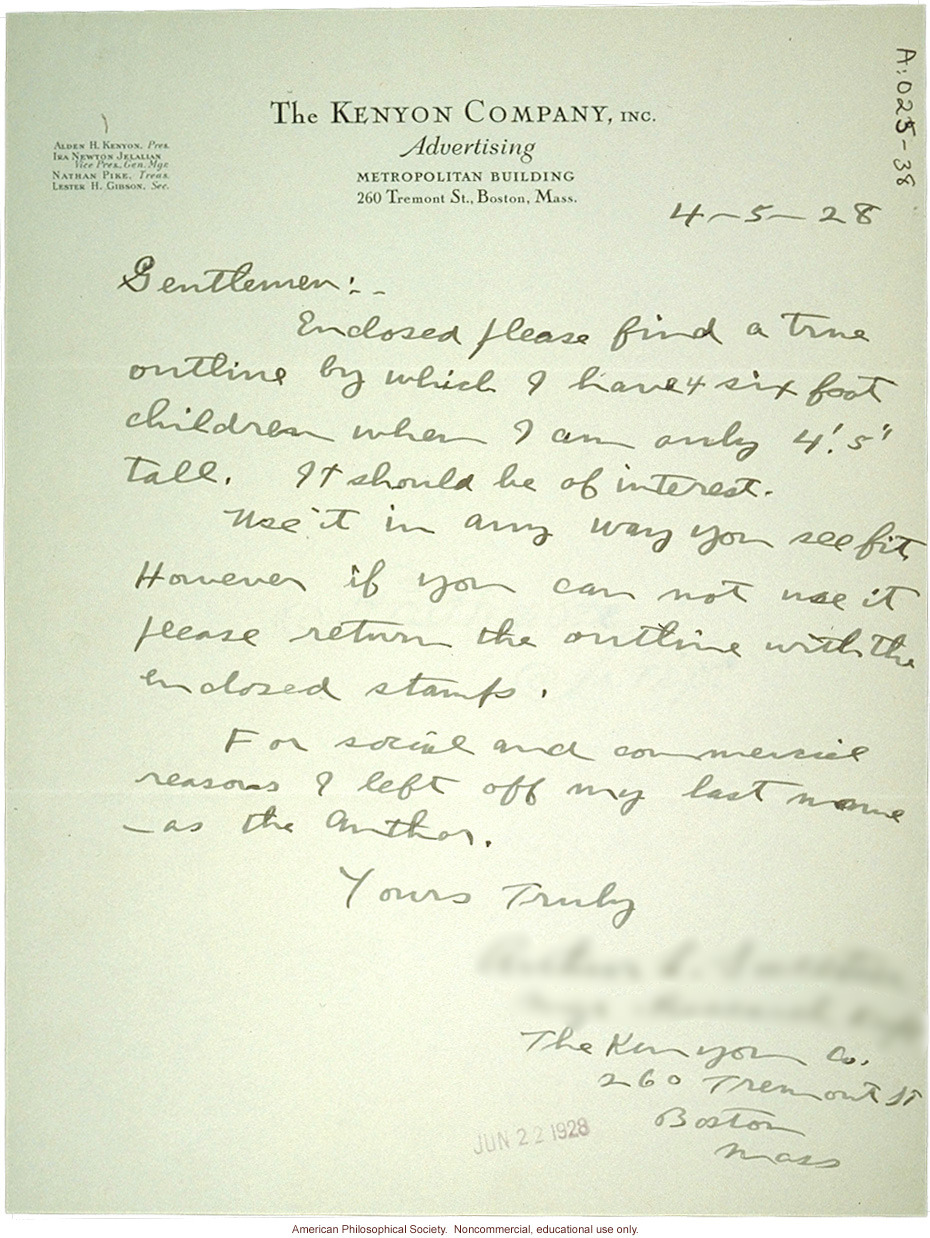 A:025-38
The KENYON COMPANY, INC.
Advertising
METROPOLITAN BUILDING
260 Tremont St., Boston, Mass.
ALDEN H. KENYON, Pres.
IRA NEWTON JELALIAN
Vice Pres. Gen. Mgr.
NATHAN PIKE, Treas.
LESTER H. GIBSON, Sec.
4-5-28
Gentlemen:-
Enclosed please find a true
outline by which I have 4 six foot
children when I am only 4'.5"
tall. It should be of interest.
Use it in any way you see fit.
However if you can not use it
please return the outline with the
enclosed stamps.
For social and commercial
reasons I left off my last name
- as the Author.
Yours Truly
The Kenyon Co.
260 Tremont St
Boston
Mass
JUN 22 1928
American Philosophical Society. Noncommercial, educational use only.